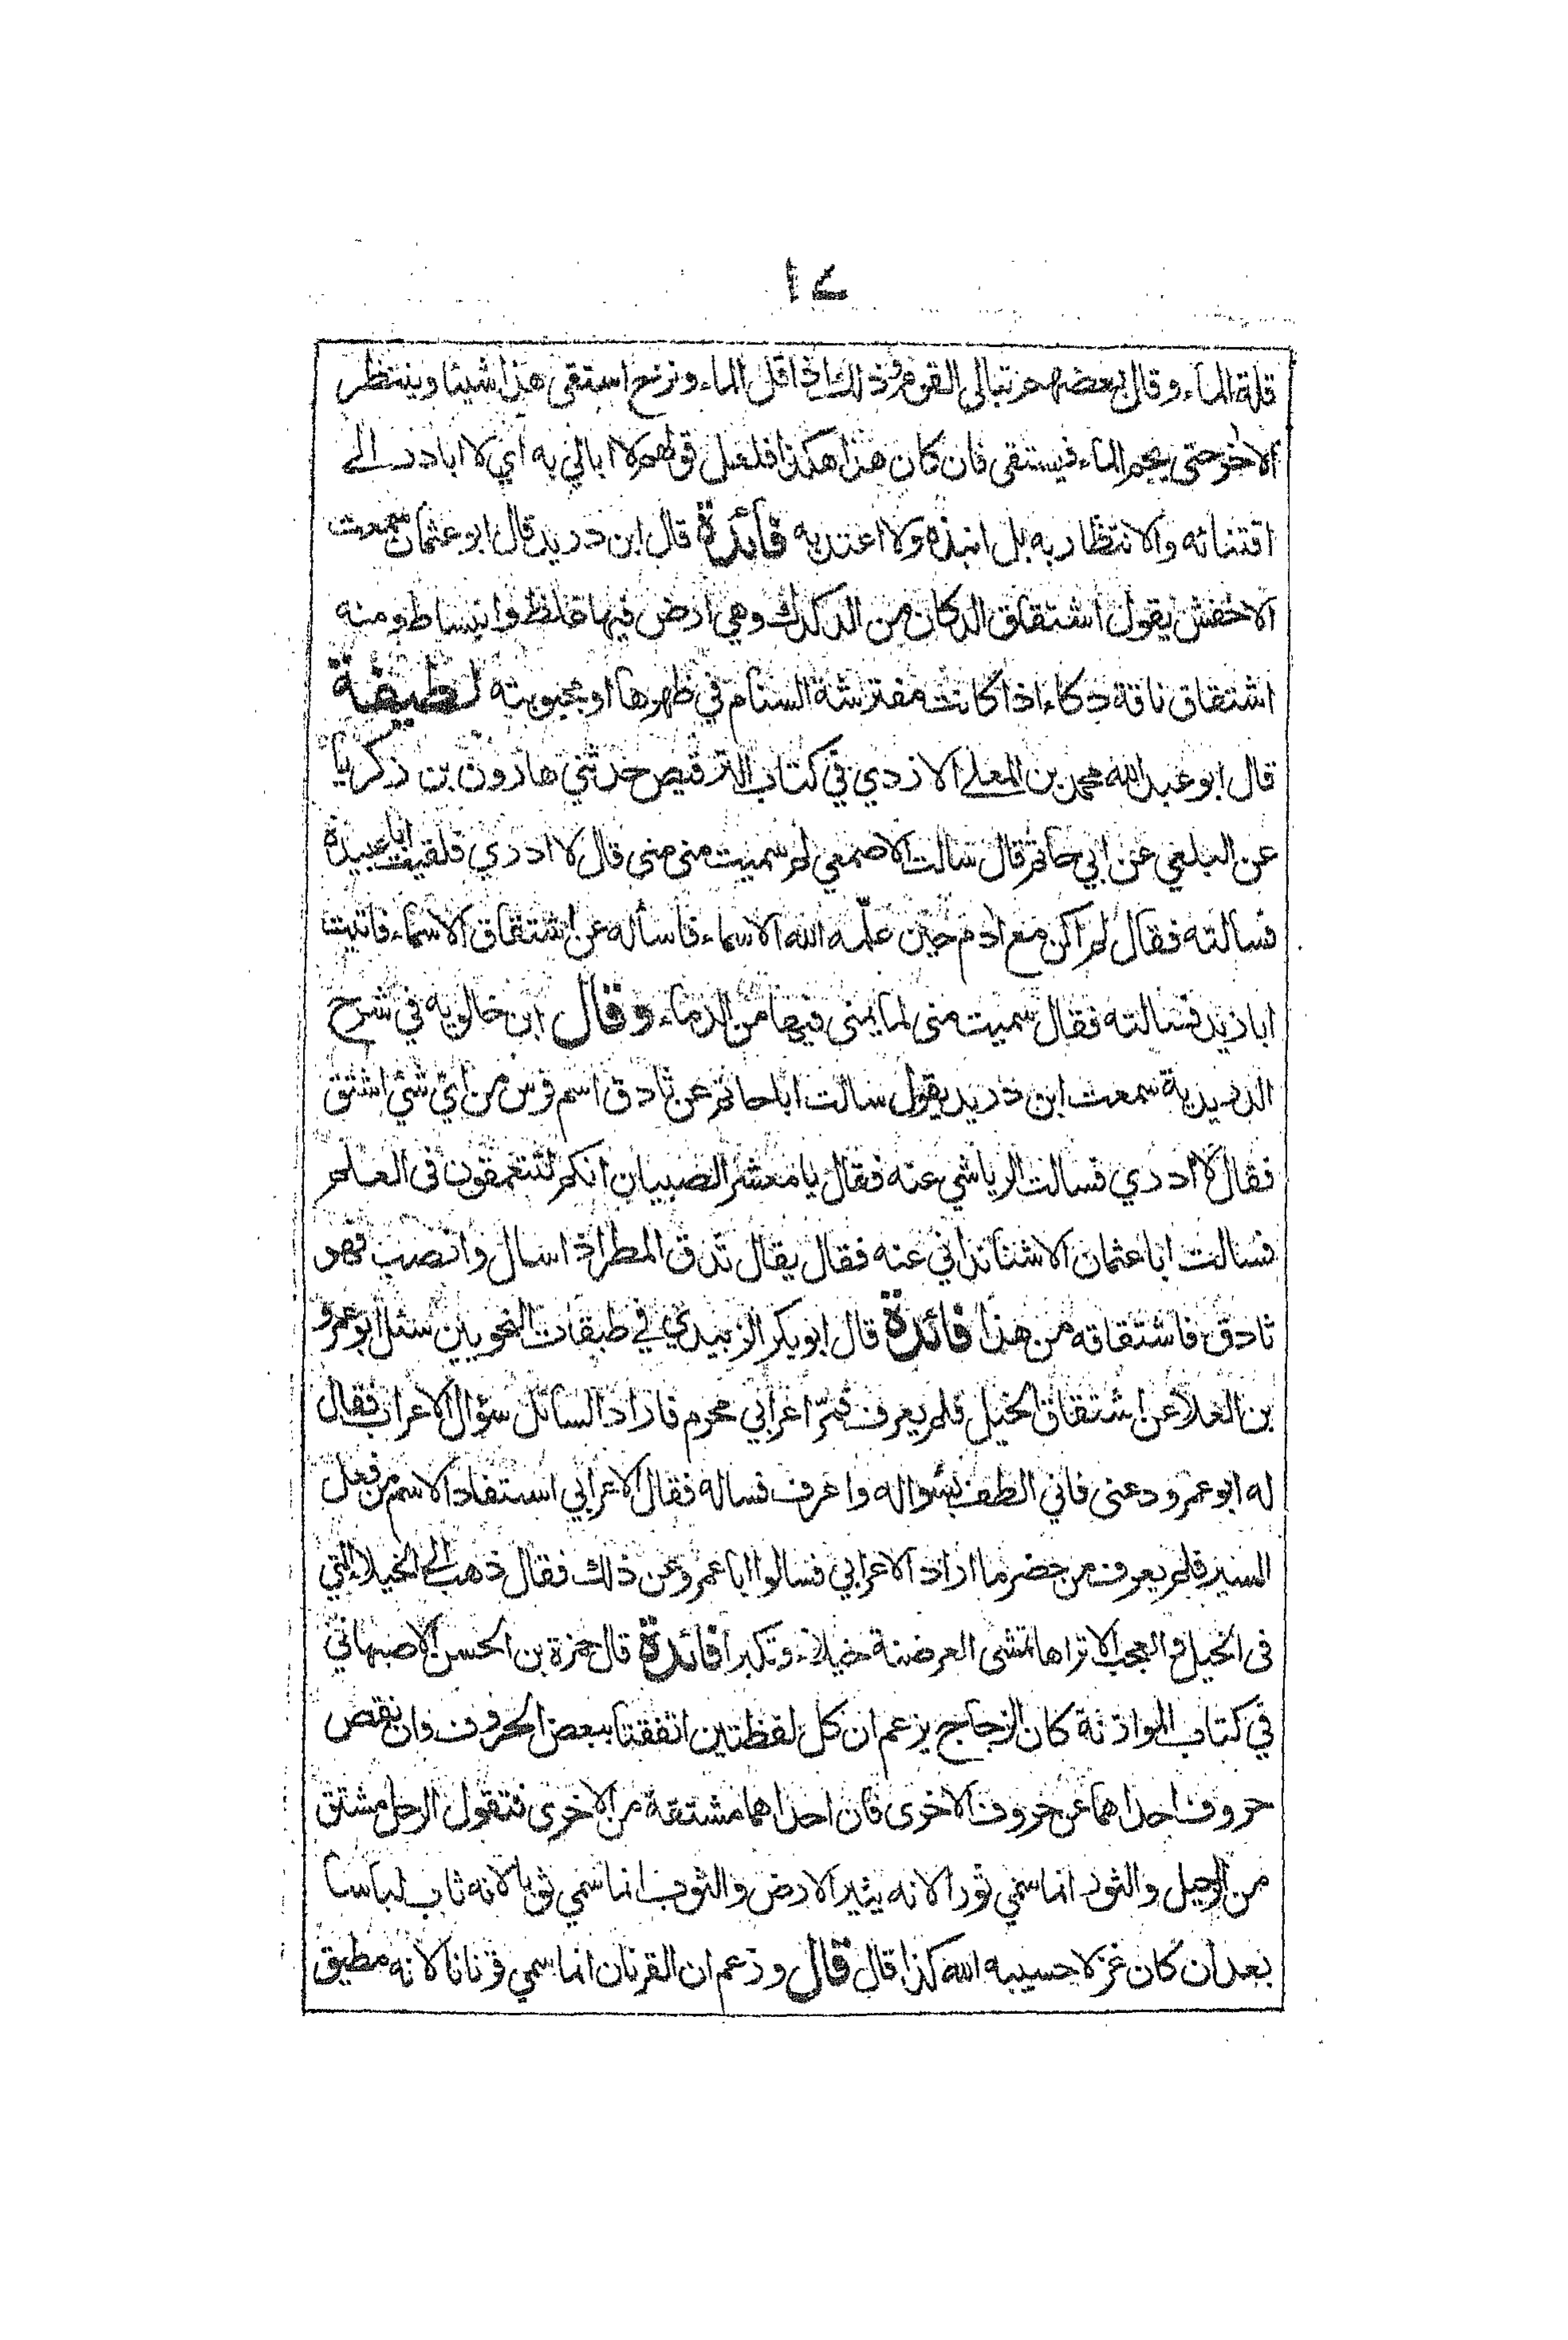 ١٤
قلة الماء وقال بعضهم تبالى القوم وذلك اذا قل الماء ونزح استقى هذا شيئا وينتظر
الاخر حتى يجم الماء فيستقى فان كان هذا هكذا فلعل قولهم لا ابالي به اي لا ابادر الے
اقتنائه والانتظار به بل انبذه ولا اعتد به فائدة قال ابن دريد قال ابو عثمان سمعت
الاخفش يقول اشتقاق الدكان من الدكدك وهي ارض فيها غلظ وانبساط ومنه
اشتقاق ناقة دكاء اذا كانت مفترشة السنام في ظهرها او مجبوبته لطيفة
قال ابو عبد الله محمد بن المعلے الازدي في كتاب الترقيص حدثني هارون بن زكريا
عن البلعي عن ابي حاتم قال سالت الاصمعي لم سميت منى منى قال لا ادري فلقيت ابا عبيدة
فسالته فقال لم اكن مع ادم حين علّمه الله الاسماء فاسأله عن اشتقاق الاسماء فاتيت
ابا زيد فسالته فقال سميت منى لما يمنى فيها من الدماء وقال ابن خالويه في شرح
الدريدية سمعت ابن دريد يقول سالت ابا حاتم عن ثادق اسم فرس من اي شئ اشتق
فقال لا ادري فسالت الرياشي عنه فقال يا معشر الصبيان انكم لتتعمقون فى العلم
فسالت ابا عثمان الاشنانداني عنه فقال يقال ثدق المطر اذا سال وانصب فهو
ثادق فاشتقاقه من هذا فائدة قال ابو بكر الزبيدي في طبقات النحويين سئل ابو عمرو
بن العلا عن اشتقاق الخيل فلم يعرف فمرّ اعرابي محرم فاراد السائل سؤال الاعراب فقال
له ابو عمرو دعنى فاني الطف بسؤاله واعرف فساله فقال الاعرابي استفاد الاسم من فعل
السير فلم يعرف من حضر ما اراد الاعرابي فسالوا ابا عمرو عن ذلك فقال ذهب الے الخيلاء التي
فى الخيل والعجب الا تراها تمشى العرضنة خيلاء وتكبرا فائدة قال حمزة بن الحسن الاصبهاني
في كتاب الموازنة كان الزجاج يزعم ان كل لفظتين اتفقتا ببعض الحروف وان نقص
حروف احداهما عن حروف الاخرى فان احداهما مشتقة من الاخرى فتقول الرحل مشتق
من الرحيل والثور انما سمي ثورا لانه يثير الارض والثوب انما سمي ثوبا لانه ثاب لباسا
بعد ان كان غزلا حسيبه الله كذا قال قال وزعم ان القرنان انما سمي قرنانا لانه مطيق